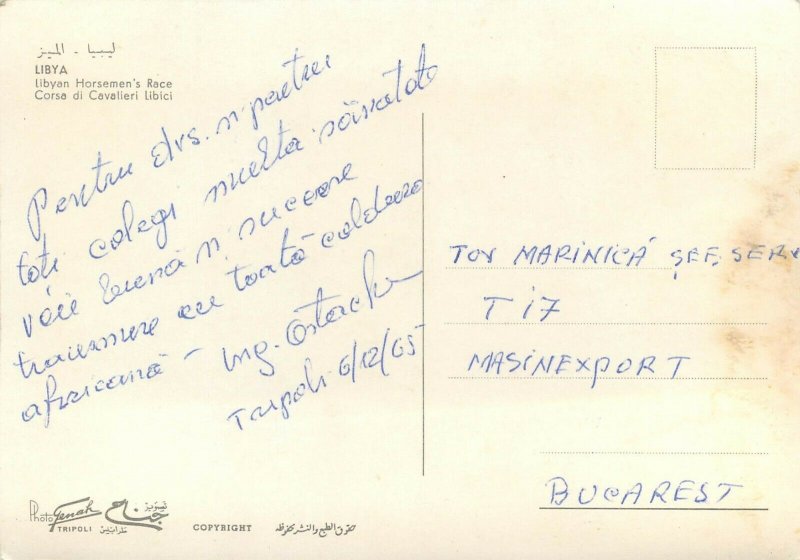 ليبيا - الميز
LIBYA
Libyan Horsemen's Race
Corsa di Cavalieri Libici
Pentru dvs. și pentru
toți colegi multă sănătate
voie bună și succese
transmise cu toată căldura
africană -
Ing. Ostache
Tripoli 6/12/65
TOV MARINICĂ ȘEF. SERV
T i 7
MASINEXPORT
BUCAREST
Photo Genah
TRIPOLI
تصوير
جناح
طرابلس
COPYRIGHT
حقوق الطبع والنشر محفوظة